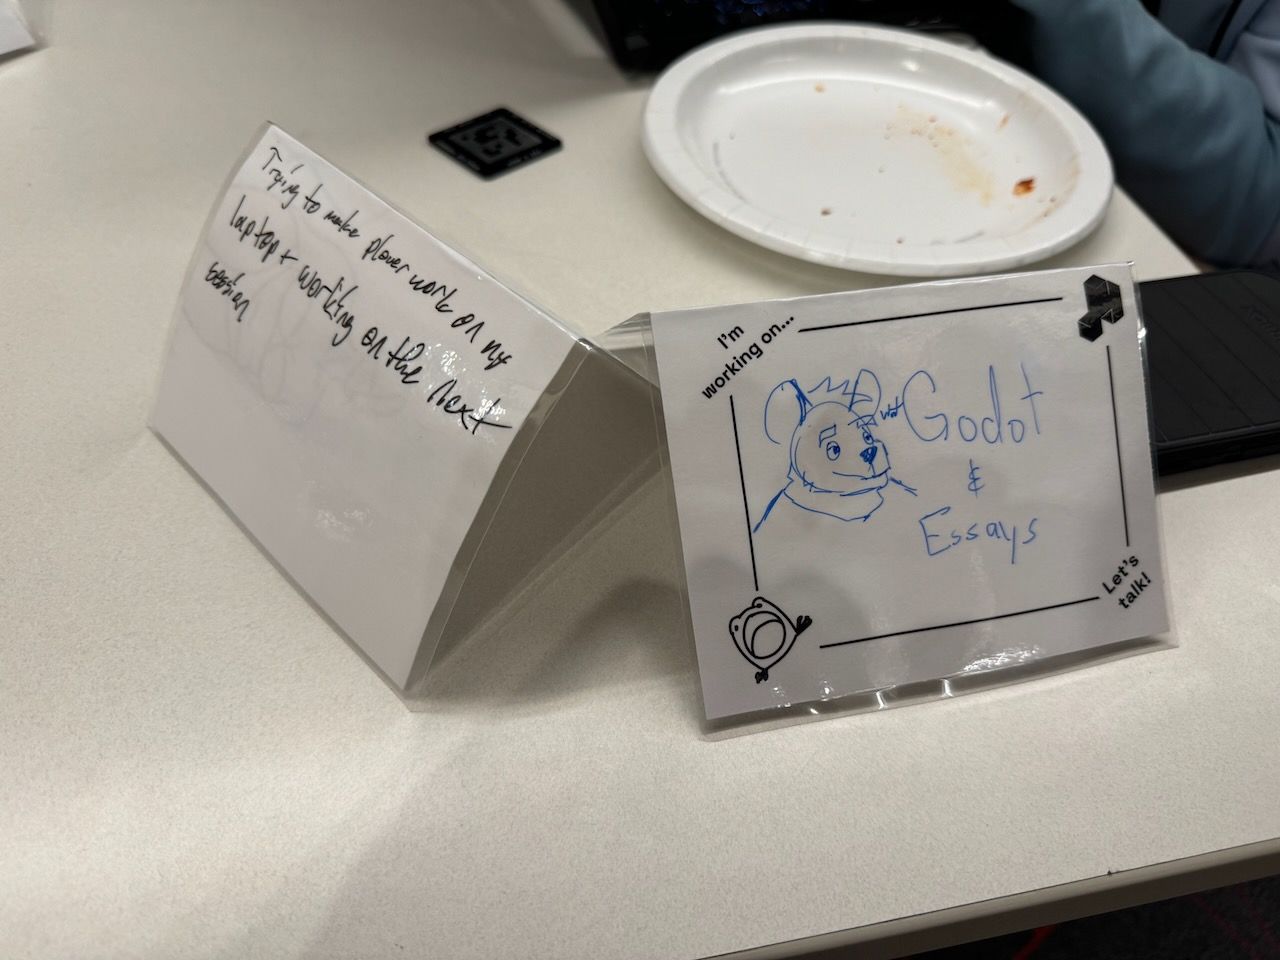 Trying to make plover work on my
laptop + working on the next
session
I'm
working on...
Godot
&
Essays
Let's
talk!